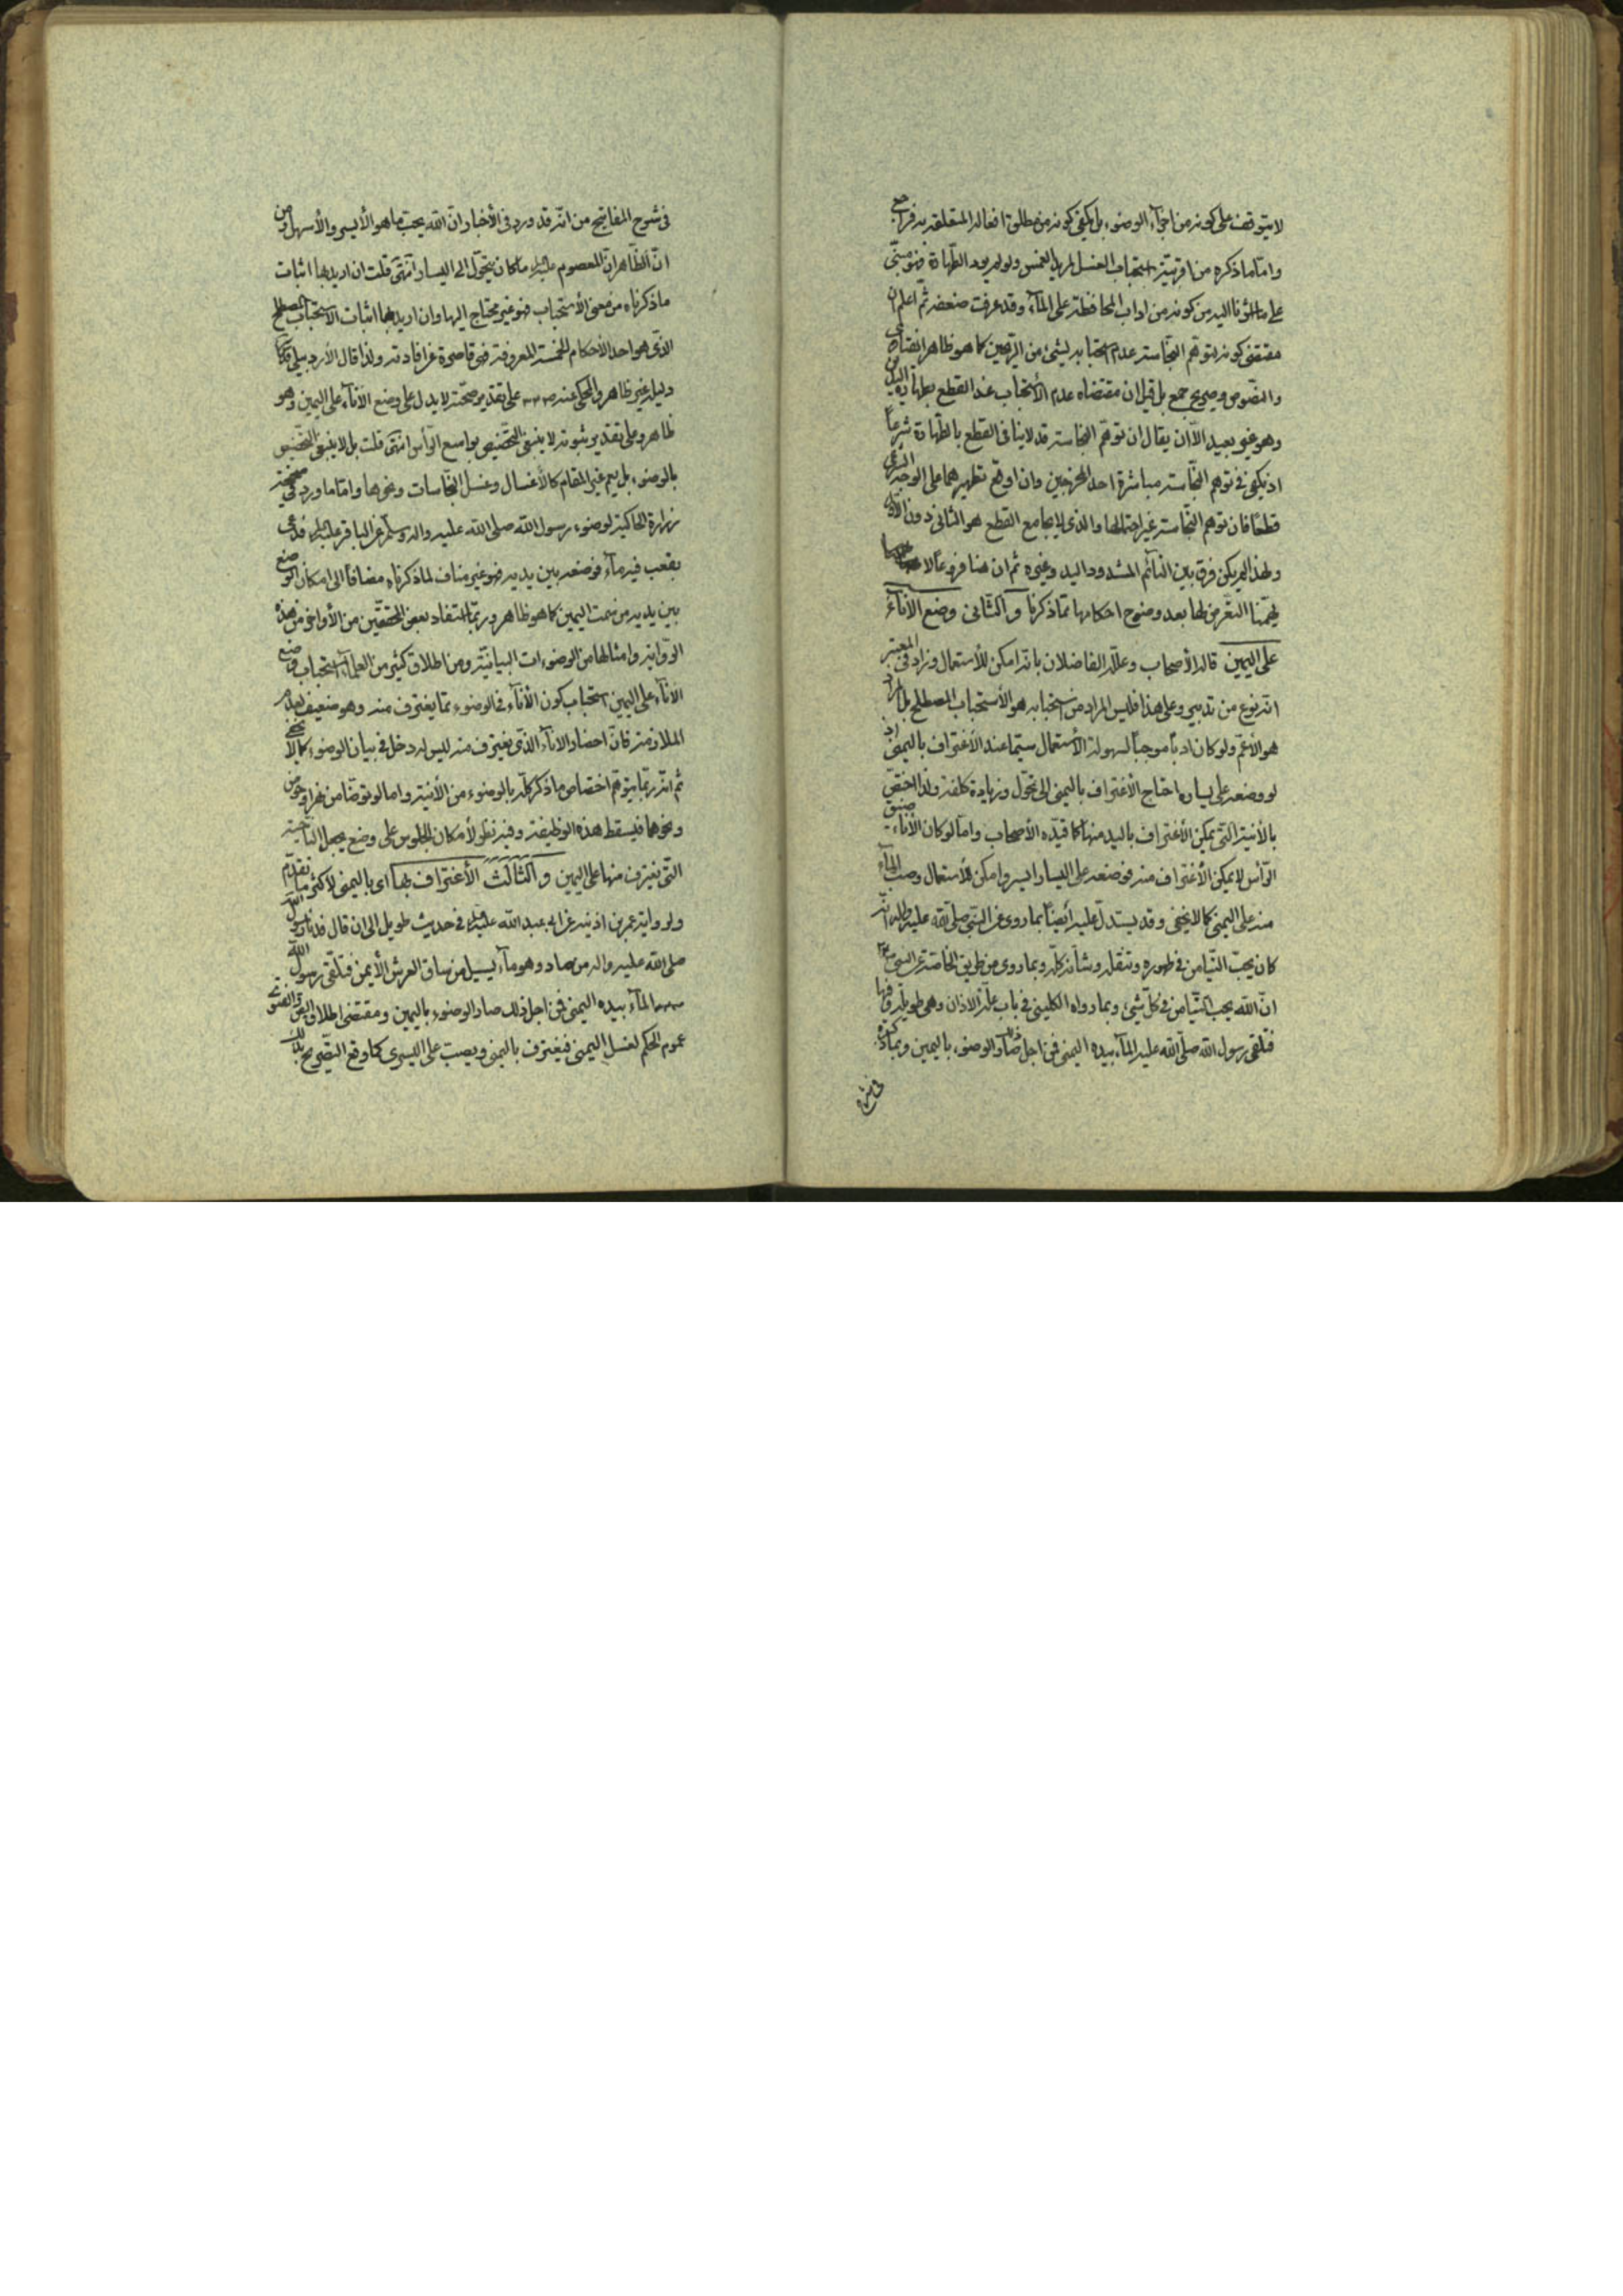 لا يتوقف على كونه من اجزاء الوضوء بل يكفي كونه من مطلق افعاله المتعلقة به فراجع
واما ما ذكره من اقربية استحباب الغسل لمريد الغمس ولو لم يرد الطهارة فهو مبني
على ما الميه من كونه من اداب المحافظة على الماء وقد عرفت ضعفه ثم اعلم ان
مقتضى كونه لتوهم النجاسة عدم استحبابه لشيء من كما هو ظاهر
والنصوص وصريح جمع بل قيل ان مقتضاه عدم الاستحباب عند القطع بطهارة اليد
وهو غير بعيد الا ان يقال ان توهم النجاسة قد لا ينافي القطع بالطهارة شرعا
اذ يكفي في توهم النجاسة مباشرة احد المخرجين وان اوقع تطهيرهما على الوجه الشرعي
قطعا فان توهم النجاسة غير احتمالها والذي لا يجامع القطع هو الثاني دون الاول
ولهذا لم يكن فرق بين النائم المشدود اليد وغيره ثم ان هنا فروعا لا
يهمنا التعرض لها بعد وضوح احكامها مما ذكرنا والثاني وضع الاناء
على اليمين قاله الأصحاب وعلله الفاضلان بانه امكن للأستعمال وزاد في المعتبر
انه نوع من تدبير وعلى هذا فليس المراد من استحبابه هو الأستحباب المصطلح بل المراد
هو الأعم ولو كان ادبا موجبا لسهولة الأستعمال سيما عند الأغتراف باليمنى اذ
لو وضعه على يساره احتاج الأغتراف باليمنى الى تحول وزيادة كلفة ولذا اختص
بالأنية التي يمكن الأغتراف باليد منها كما قيده الأصحاب واما لو كان الأناء ضيق
الرأس لا يمكن الأغتراف منه فوضعه على اليسار ايسر وامكن للأستعمال وصب الماء
منه على اليمنى كما لا يخفى وقد يستدل عليه أيضا بما روى عن النبي صلى الله عليه واله انه
كان يحب التيامن في طهوره وتنقله وشأنه كله وبما روى من طريق الخاصة عن النبي
ان الله يحب التيامن في كل شيء وبما رواه الكليني في باب علة الاذان وهي طويلة وفيها
فتلقى رسول الله صلى الله عليه الماء بيده اليمنى فمن اجل ذلك صار الوضوء باليمين وبما ذكره
في شرح
في شرح المفاتيح من انه قد ورد في الأخبار ان الله يحب ما هو الأيسر والأسهل ومن
ان الظاهر ان المعصوم عليه السلام ما كان يتحول الى اليسار انتهى قلت ان اريد بها اثبات
ما ذكرناه من معنى الأستحباب فهو غير محتاج اليها وان اريد بها اثبات الاستحباب المصطلح
الذي هو احد الأحكام الخمسة المعروفة فهي قاصرة عن افادته ولذا قال الأردبيلي فيما حكى
دليله غير ظاهر والمحكى عنه على تقدير صحته لا يدل على وضع الأناء على اليمين وهو
ظاهر وعلى تقدير ثبوته لا ينبغي التخصيص بواسع الرأس انتهى قلت بل لا ينبغي التخصيص
بالوضوء بل يعم غير المقام كالأغسال وغسل النجاسات ونحوها واما ما ورد في صحيحة
زرارة الحاكية لوضوء رسول الله صلى الله عليه واله وسلم عن الباقر عليه السلام فدعى
بقعب فيه ماء فوضعه بين يديه فهو غير مناف لما ذكرناه مضافا الى امكان الوضع
بين يديه من سمت اليمين كما هو ظاهر وربما استفاد بعض المحققين من الأواخر من هذه
الرواية وامثالها من الوضوءات البيانية ومن اطلاق كثير من العلماء استحباب وضع
الاناء على اليمين استحباب كون الأناء في الوضوء مما يغترف منه وهو ضعيف لعدم
الملازمة فان احضار الاناء الذي يغترف منه ليس له دخل في بيان الوضوء كما لا يخفى
ثم انه ربما يتوهم اختصاص ما ذكر كله بالوضوء من الأنية واما لو توضأ من نهر او حوض
ونحوهما فيسقط هذه الوظيفة وفيه نظر لأمكان الجلوس على وضع يجعل الناحية
التي يغترف منها على اليمين والثالث الأغتراف بها اى باليمنى لاكثر ما تقدم
ولرواية عمر بن اذينه عن ابي عبد الله عليه السلام في حديث طويل الى ان قال فدنا رسول الله
صلى الله عليه واله من صاد وهو ماء يسيل من ساق العرش الأيمن فتلقى رسول الله
الماء بيده اليمنى فمن اجل ذلك صار الوضوء باليمين ومقتضى اطلاق النص والفتوى
عموم الحكم لغسل اليمنى فيغترف باليمنى ويصب على اليسرى كما وقع التصريح بذلك